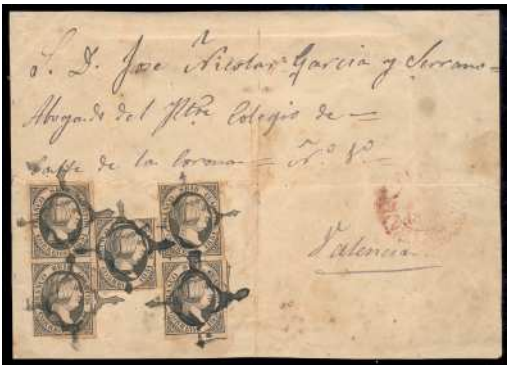 S. D. Jose Nicolas Garcia y Serrano =
Abogado del Iltre Colegio de =
Calle de la Corona = Nº 8º
Valencia